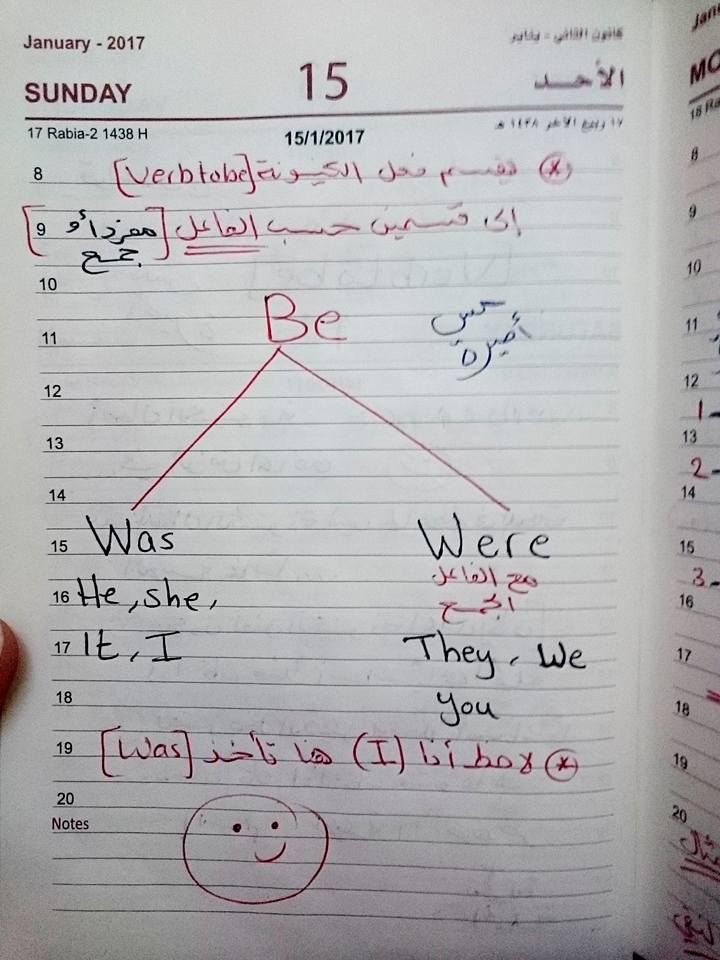 January - 2017
كانون الثاني - يناير
SUNDAY
15
الأحد
17 Rabia-2 1438 H
15/1/2017
١٧ ربيع الآخر ١٤٣٨ هـ
8
* يقسم فعل الكينونة [Verb tobe]
9
إلى قسمين حسب الفاعل [مفردا أو
جمع
10
Be
11
12
13
14
Was
Were
15
مع الفاعل
16
He, she,
الجمع
17
It, I
They, We
18
you
19
* لاحظ أنا (I) هنا تأخذ [Was]
20
Notes
8
9
10
11
12
1-
13
2-
14
15
3-
16
17
18
19
20